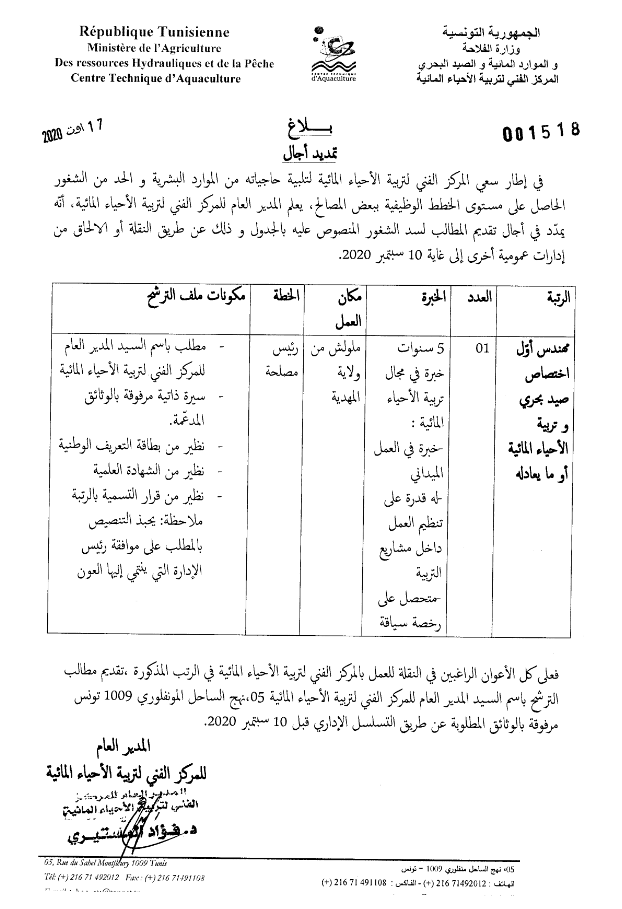 République Tunisienne
Ministère de l'Agriculture
Des ressources Hydrauliques et de la Pêche
Centre Technique d'Aquaculture
CENTRE TECHNIQUE
d'Aquaculture
الجمهورية التونسية
وزارة الفلاحة
و الموارد المائية و الصيد البحري
المركز الفني لتربية الأحياء المائية
17 اوت 2020
001518
بـــلاغ
تمديد أجال
في إطار سعي المركز الفني لتربية الأحياء المائية لتلبية حاجياته من الموارد البشرية و الحد من الشغور
الحاصل على مستوى الخطط الوظيفية ببعض المصالح، يعلم المدير العام للمركز الفني لتربية الأحياء المائية، أنّه
يمدّد في أجال تقديم المطالب لسد الشغور المنصوص عليه بالجدول و ذلك عن طريق النقلة أو الالحاق من
إدارات عمومية أخرى إلى غاية 10 سبتمبر 2020.
الرتبة
العدد
الخبرة
مكان
العمل
الخطة
مكونات ملف الترشح
مهندس أوّل
اختصاص
صيد بحري
و تربية
الأحياء المائية
أو ما يعادله
01
5 سنوات
خبرة في مجال
تربية الأحياء
المائية :
-خبرة في العمل
الميداني
-له قدرة على
تنظيم العمل
داخل مشاريع
التربية
-متحصل على
رخصة سياقة
ملولش من
ولاية
المهدية
رئيس
مصلحة
- مطلب باسم السيد المدير العام
للمركز الفني لتربية الأحياء المائية
- سيرة ذاتية مرفوقة بالوثائق
المدعّمة.
- نظير من بطاقة التعريف الوطنية
- نظير من الشهادة العلمية
- نظير من قرار التسمية بالرتبة
ملاحظة: يحبذ التنصيص
بالمطلب على موافقة رئيس
الإدارة التي ينتمي إليها العون
فعلى كل الأعوان الراغبين في النقلة للعمل بالمركز الفني لتربية الأحياء المائية في الرتب المذكورة ،تقديم مطالب
الترشح باسم السيد المدير العام للمركز الفني لتربية الأحياء المائية 05،نهج الساحل المونفلوري 1009 تونس
مرفوقة بالوثائق المطلوبة عن طريق التسلسل الإداري قبل 10 سبتمبر 2020.
المدير العام
للمركز الفني لتربية الأحياء المائية
المدير العام للمركز
الفني لتربية الأحياء المائية
د. فؤاد المستيري
05, Rue du Sahel Montfleury 1009 Tunis
Tél: (+) 216 71 492012 Fax: (+) 216 71491108
05، نهج الساحل منفلوري 1009 – تونس
الهاتف : 71492012 216 (+) - الفاكس : 491108 71 216 (+)